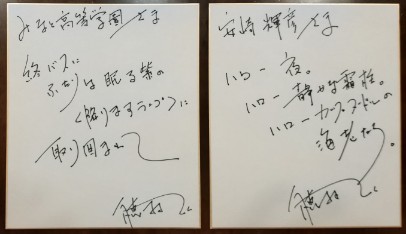 みなと高等学園さま
終バスに
ふたりは眠る紫の
〈降りますランプ〉に
取り囲まれて
穂村弘
安崎輝彦さま
ハロー 夜。
ハロー 静かな霜柱。
ハロー カップヌードルの
海老たち。
穂村弘